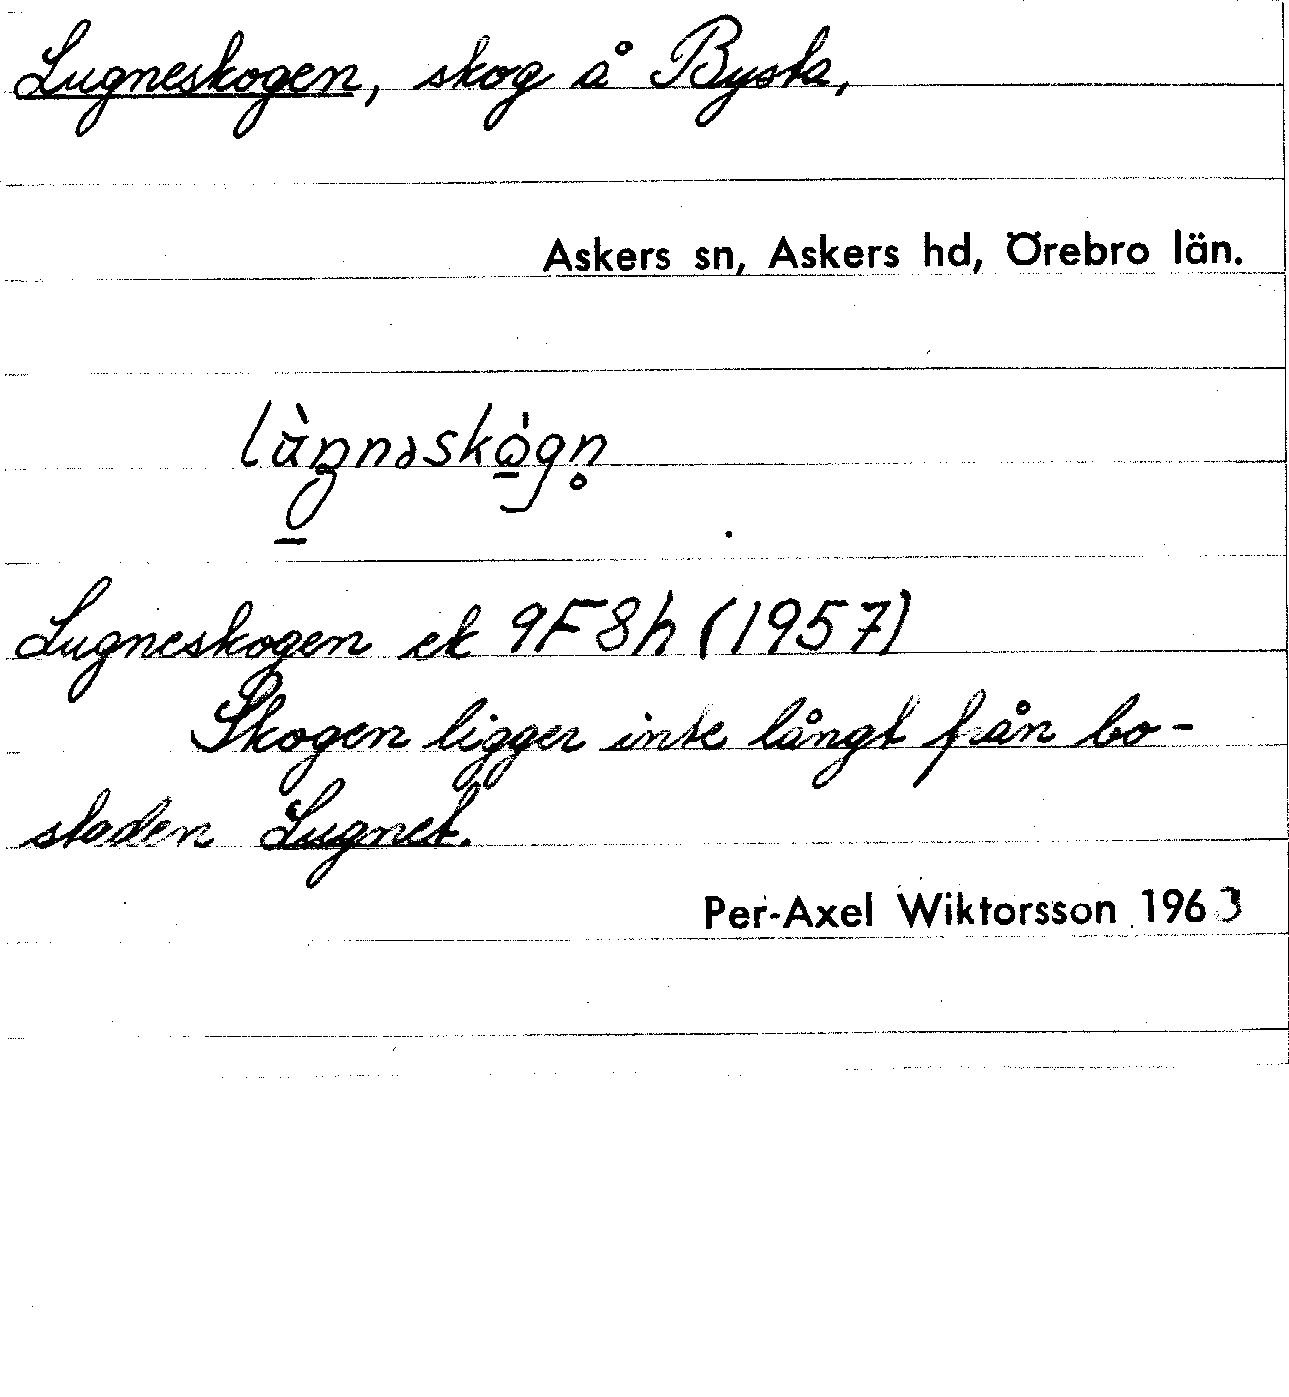 Lugneskogen, skog å Bysta,
Askers sn, Askers hd, Örebro län.
Lugneskogen ek 9F8h (1957)
Skogen ligger inte långt från bo-
staden Lugnet.
Per-Axel Wiktorsson 1963